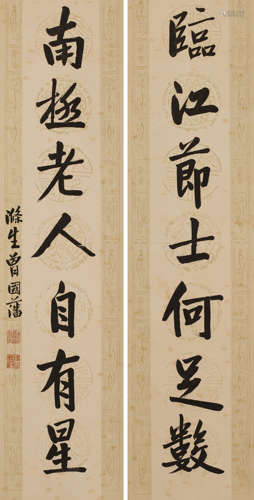 臨江節士何足數
南極老人自有星
滌生曾國藩